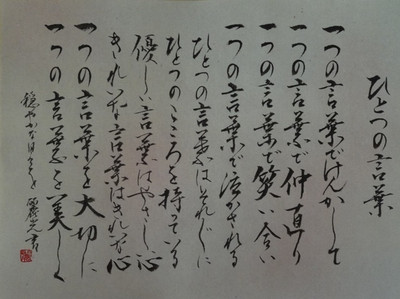 ひとつの言葉
一つの言葉でけんかして
一つの言葉で仲直り
一つの言葉で笑い合い
一つの言葉で泣かされる
ひとつの言葉はそれぞれに
ひとつのこころを持っている
優しい言葉はやさしい心
きれいな言葉はきれいな心
一つの言葉を大切に
一つの言葉を美しく
穏やかな日々を